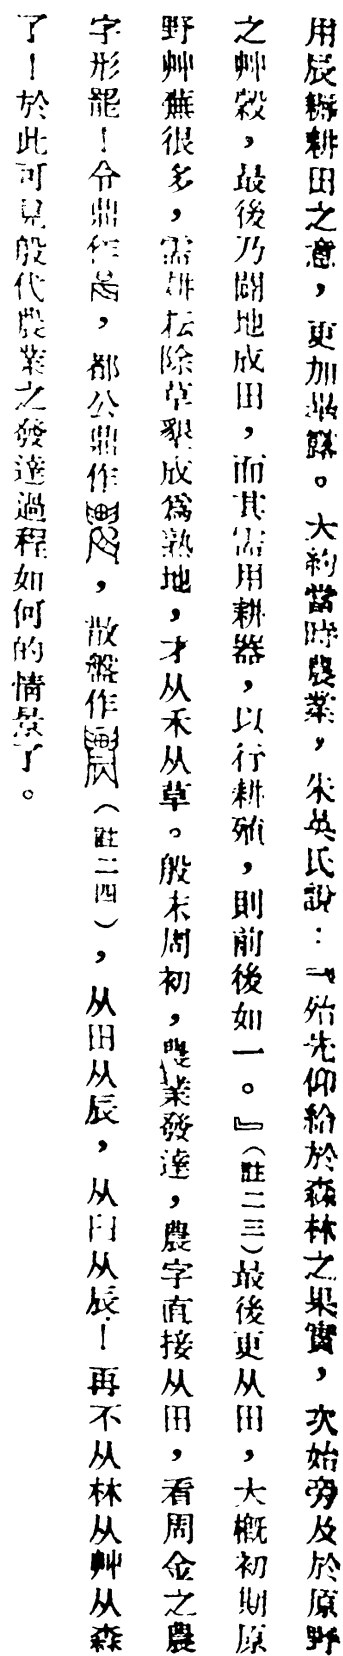 用辰耨耕田之意，更加顯露。大約當時農業，朱英氏說：『殆先仰給於森林之果實，次始旁及於原野
之艸穀，最後乃闢地成田，而其需用耕器，以行耕殖，則前後如一。』（註二三）最後更从田，大概初期原
野艸蕪很多，需耕耘除草墾成為熟地，才从禾从草。殷末周初，農業發達，農字直接从田，看周金之農
字形罷！令鼎作，都公鼎作，散盤作（註二四），从田从辰，从臼从辰！再不从林从艸从森
了！於此可見殷代農業之發達過程如何的情景了。